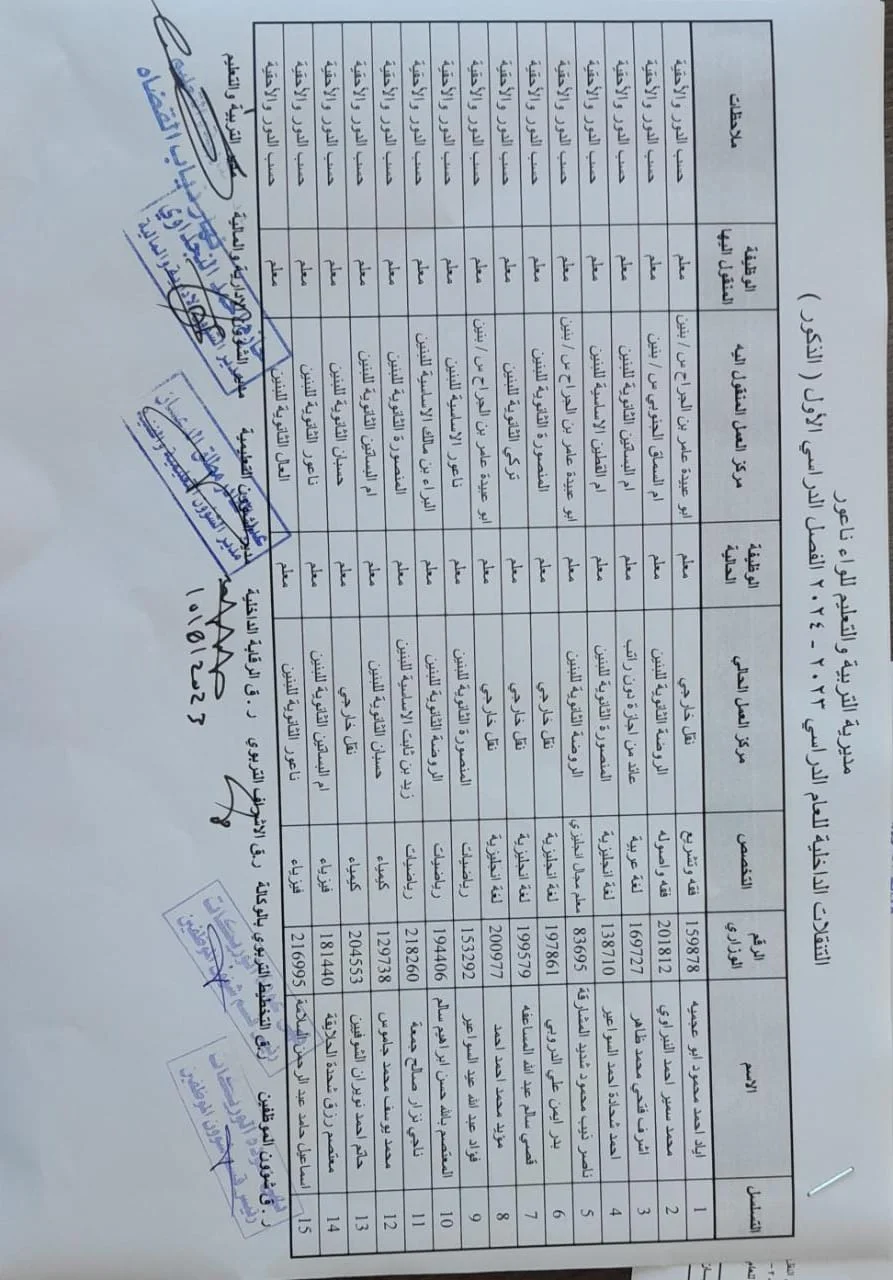 مديرية التربية والتعليم للواء ناعور
التنقلات الداخلية للعام الدراسي ٢٠٢٣ - ٢٠٢٤ الفصل الدراسي الأول ( الذكور )
التسلسل الاسم الرقم الوزاري التخصص مركز العمل الحالي الوظيفة الحالية مركز العمل المنقول اليه الوظيفة المنقول اليها ملاحظات
1 اياد احمد محمود ابو عجميه 159878 فقه وتشريع نقل خارجي معلم ابو عبيدة عامر بن الجراح س / بنين معلم حسب الدور والأحقية
2 محمد سمير احمد النبراوي 201812 فقه واصوله الروضة الثانوية للبنين معلم ام السماق الجنوبي س / بنين معلم حسب الدور والأحقية
3 اشرف فتحي محمد ظاهر 169727 لغة عربية عائد من اجازة دون راتب معلم ام البساتين الثانوية للبنين معلم حسب الدور والأحقية
4 احمد شحادة احمد السواعير 138710 لغة انجليزية المنصورة الثانوية للبنين معلم ام القطين الاساسية للبنين معلم حسب الدور والأحقية
5 ناصر ذيب محمود شديد المشارقة 83695 معلم مجال انجليزي الروضة الثانوية للبنين معلم ابو عبيدة عامر بن الجراح س / بنين معلم حسب الدور والأحقية
6 بدر ايمن علي الدروبي 197861 لغة انجليزية نقل خارجي معلم المنصورة الثانوية للبنين معلم حسب الدور والأحقية
7 قصي سالم عبد الله المساعفه 199579 لغة انجليزية نقل خارجي معلم تركي الثانوية للبنين معلم حسب الدور والأحقية
8 مؤيد محمد احمد احمد 200977 لغة انجليزية نقل خارجي معلم ابو عبيدة عامر بن الجراح س / بنين معلم حسب الدور والأحقية
9 فؤاد عبد الله عيد السواعير 153292 رياضيات المنصورة الثانوية للبنين معلم ناعور الاساسية للبنين معلم حسب الدور والأحقية
10 المعتصم بالله حسن ابراهيم سالم 194406 رياضيات الروضة الثانوية للبنين معلم البراء بن مالك الاساسية للبنين معلم حسب الدور والأحقية
11 ناجي نزار صالح جمعة 218260 رياضيات زيد بن ثابت الاساسية للبنين معلم المنصورة الثانوية للبنين معلم حسب الدور والأحقية
12 محمد يوسف محمد جاموس 129738 كيمياء حسبان الثانوية للبنين معلم ام البساتين الثانوية للبنين معلم حسب الدور والأحقية
13 حاتم احمد نويران الشوفيين 204553 كيمياء نقل خارجي معلم حسبان الثانوية للبنين معلم حسب الدور والأحقية
14 معتصم رزق شحدة الحلايقة 181440 فيزياء ام البساتين الثانوية للبنين معلم ناعور الثانوية للبنين معلم حسب الدور والأحقية
15 اسماعيل حامد عبد الرحمن السلامة 216995 فيزياء ناعور الثانوية للبنين معلم العال الثانوية للبنين معلم حسب الدور والأحقية
ر . ق شؤون الموظفين ر.ق التخطيط التربوي بالوكالة ر.ق الاشراف التربوي ر . ق الرقابة الداخلية مدير الشؤون التعليمية مدير الشؤون الإدارية والمالية مدير التربية والتعليم
15/8/2023